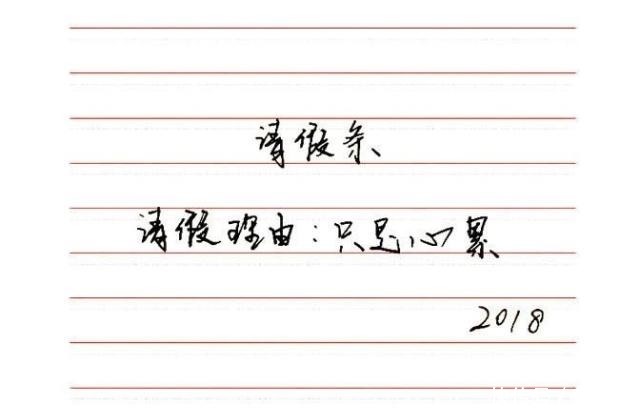 请假条
请假理由：只是心累
2018